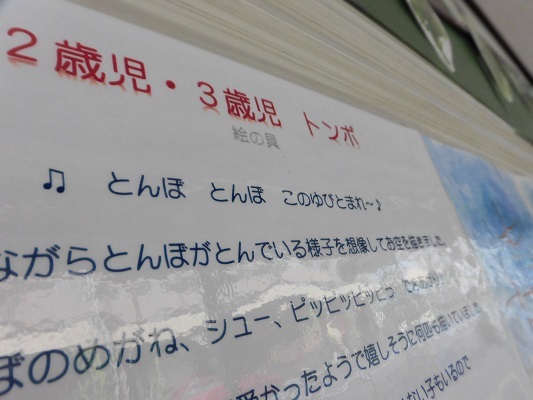 2歳児・3歳児 トンボ
絵の具
♫ とんぼ とんぼ このゆびとまれ~♪
ながらとんぼがとんでいる様子を想像してお空を描きました。
ぼのめがね、シュー、ピッピッピッピっ
かったようで嬉しそうに何回も描いていました
ない子もいるので